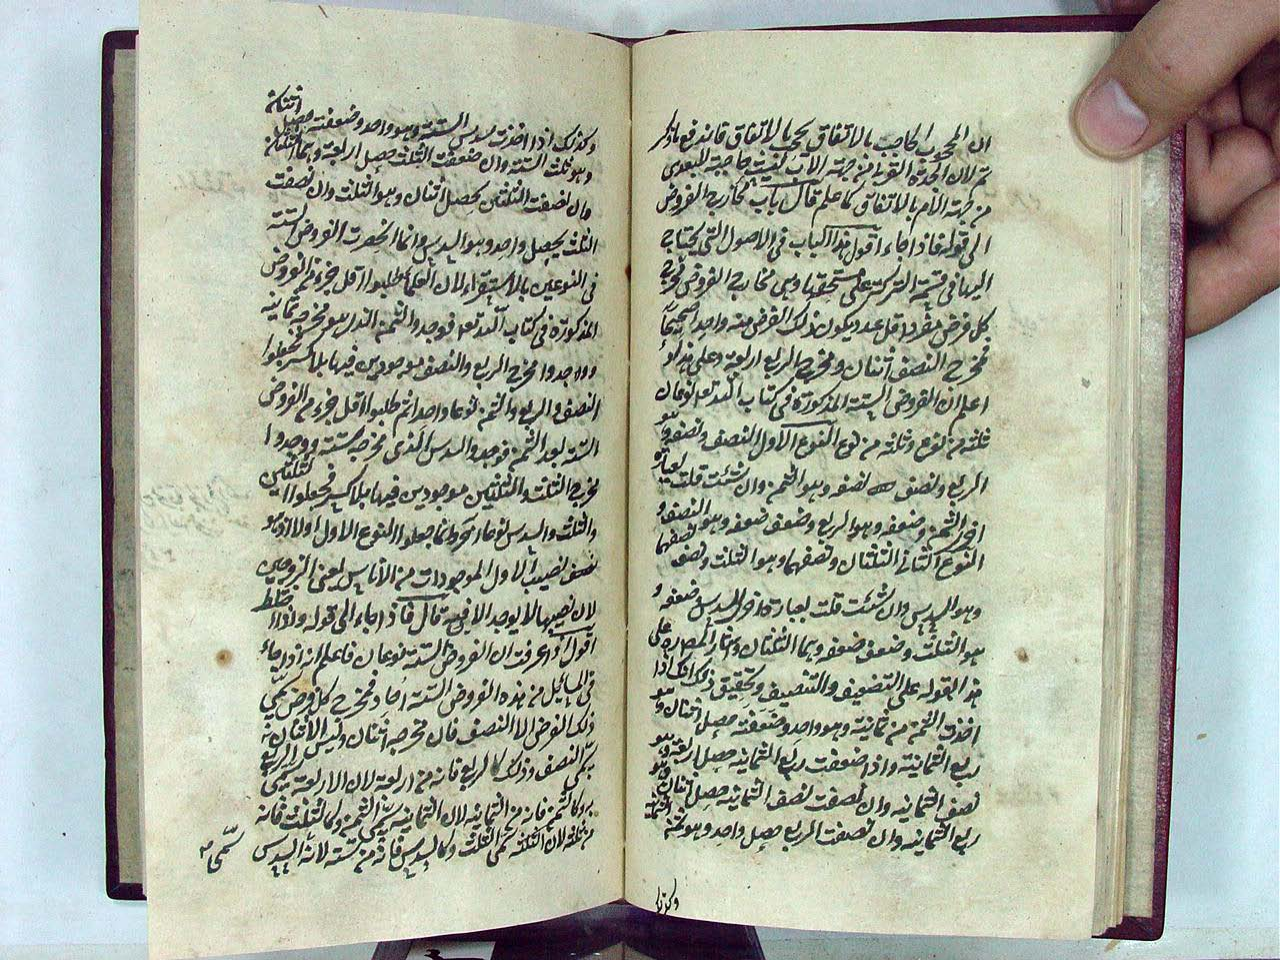 ان المحجوب الحاجب بالاتفاق يحجب بالاتفاق فاندفع ما ذكر
ثم لان الجدة القربى من جهة الاب كانت حاجبة للبعدى
من جهة الام بالاتفاق كما علم قال باب مخارج الفروض
الى قوله فاذا جاء اقول هذا الباب فى الاصول التى يحتاج
اليها فى قسمة التركة على مستحقيها وهى مخارج الفروض فمخرج
كل فرض مفرد اقل عدد يكون ذلك الفرض منه واحدا صحيحا
فمخرج النصف اثنان ومخرج الربع اربعة وعلى هذا
اعلم ان الفروض الستة المذكورة فى كتاب الله تعالى نوعان
ثلثة من نوع وثلثة من نوع النوع الاول النصف ونصفه وهو
الربع ونصف نصفه وهو الثمن وان شئت قلت بعبارة
اخرى الثمن وضعفه وهو الربع وضعف ضعفه وهو النصف و
النوع الثانى الثلثان ونصفهما وهو الثلث ونصف نصفهما
وهو السدس وان شئت قلت بعبارة اخرى السدس وضعفه و
هو الثلث وضعف ضعفه وهما الثلثان واشار المصنف على
هذا بقوله على التضعيف والتنصيف وتحقيق ذلك انك اذا
اخذت الثمن من ثمانية وهو واحد وضعفته حصل اثنان وهو
ربع الثمانية واذا ضعفت ربع الثمانية حصل اربعة وهو
نصف الثمانية وان نصفت نصف الثمانية حصل اثنان وهو
ربع الثمانية وان نصفت الربع حصل واحد وهو ثمن الثمانية
وكذلك
وكذلك اذا اخذت سدس الستة وهو واحد وضعفته حصل اثنان
وهو ثلث الستة وان ضعفت الثلث حصل اربعة وهما الثلثان
وان نصفت الثلثين يحصل اثنان وهو الثلث وان نصفت
الثلث يحصل واحد وهو السدس وانما انحصرت الفروض الستة
فى النوعين بالاستقراء لان العلماء طلبوا اقل جزء من الفروض
المذكورة فى كتاب الله تعالى فوجدوا الثمن الذى هو مخرجه ثمانية
ووجدوا مخرج الربع والنصف موجودين فيها بلا كسر فجعلوا
النصف والربع والثمن نوعا واحدا ثم طلبوا اقل جزء من الفروض
الستة بعد الثمن فوجدوا السدس الذى مخرجه ستة ووجدوا
مخرج الثلث والثلثين موجودين فيها بلا كسر فجعلوا الثلثين
والثلث والسدس نوعا آخر وانما جعلوا النوع الاول اولا لانه
نصف نصيب الاول الموجودات من الاناس يعنى الزوجين
لان نصيبهما لا يوجد الا فيه قال فاذا جاء الى قوله واذا اختلط
اقول اذا عرفت ان الفروض الستة نوعان فاعلم انه اذا جاء
فى المسائل من هذه الفروض الستة احاد فمخرج كل فرض سمى
ذلك الفرض الا النصف فان مخرجه اثنان وليس الاثنان
سمى النصف وذلك كالربع فانه من اربعة لان الاربعة سمى الربع
وكالثمن فانه من الثمانية لان الثمانية سمى الثمن وكالثلث فانه
من ثلثة لان الثلثة سمى الثلث وكالسدس فانه من ستة لانه السدس
سمى